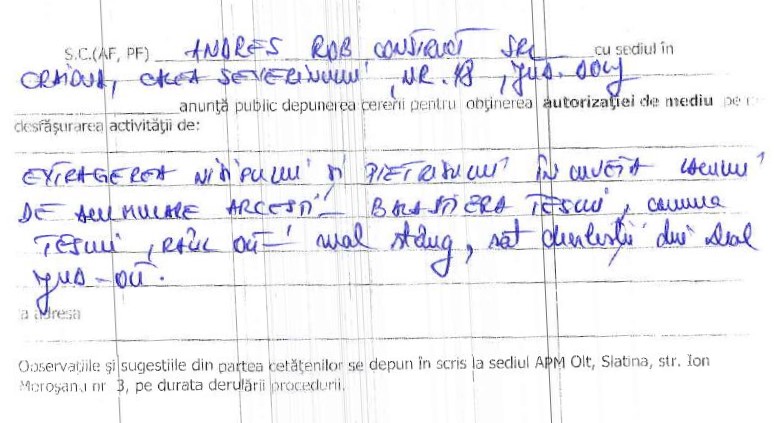 S.C.(AF, PF) ANDRES ROB CONSTRUCT SRL cu sediul în
CRAIOVA, CALEA SEVERINULUI, NR. 48, Jud. DOLJ
anunţă public depunerea cererii pentru obţinerea autorizaţiei de mediu pe
desfăşurarea activităţii de:
EXTRAGEREA NISIPULUI ŞI PIETRIŞULUI ÎN CUVETA LACULUI
DE ACUMULARE ARCEŞTI - BALASTIERA TESLUI, comuna
TESLUI, RÂUL OLT - mal stâng, sat din Deal
Jud - OLT.
a adresa
Observaţiile şi sugestiile din partea cetăţenilor se depun în scris la sediul APM Olt, Slatina, str. Ion
Moroşanu nr 3, pe durata derulării procedurii.